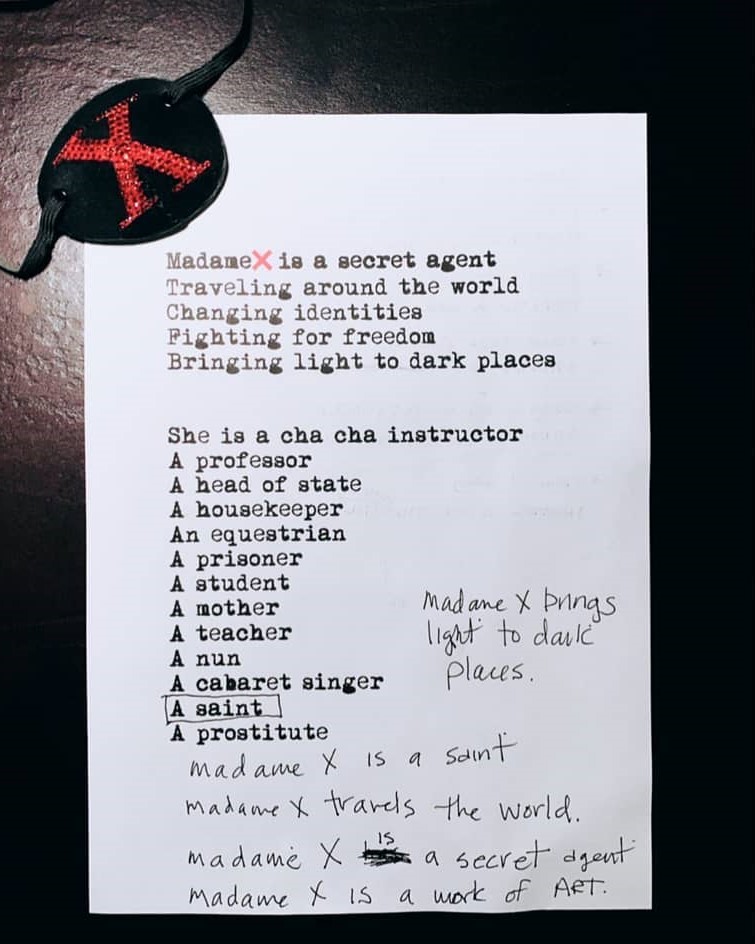 X
Madame❌ is a secret agent
Traveling around the world
Changing identities
Fighting for freedom
Bringing light to dark places
She is a cha cha instructor
A professor
A head of state
A housekeeper
An equestrian
A prisoner
A student
A mother
A teacher
A nun
A cabaret singer
A saint
A prostitute
Madame X brings
light to dark
places.
madame X is a saint
madame X travels the world.
madame X is a secret agent
Madame X is a work of ART.